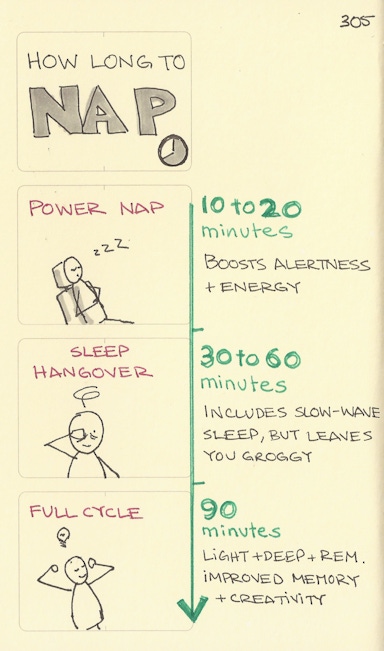 305
HOW LONG TO
NAP
POWER NAP
zzz
10 to 20
minutes
BOOSTS ALERTNESS
+ ENERGY
SLEEP
HANGOVER
30 to 60
minutes
INCLUDES SLOW-WAVE
SLEEP, BUT LEAVES
YOU GROGGY
FULL CYCLE
90
minutes
LIGHT + DEEP + REM.
IMPROVED MEMORY
+ CREATIVITY